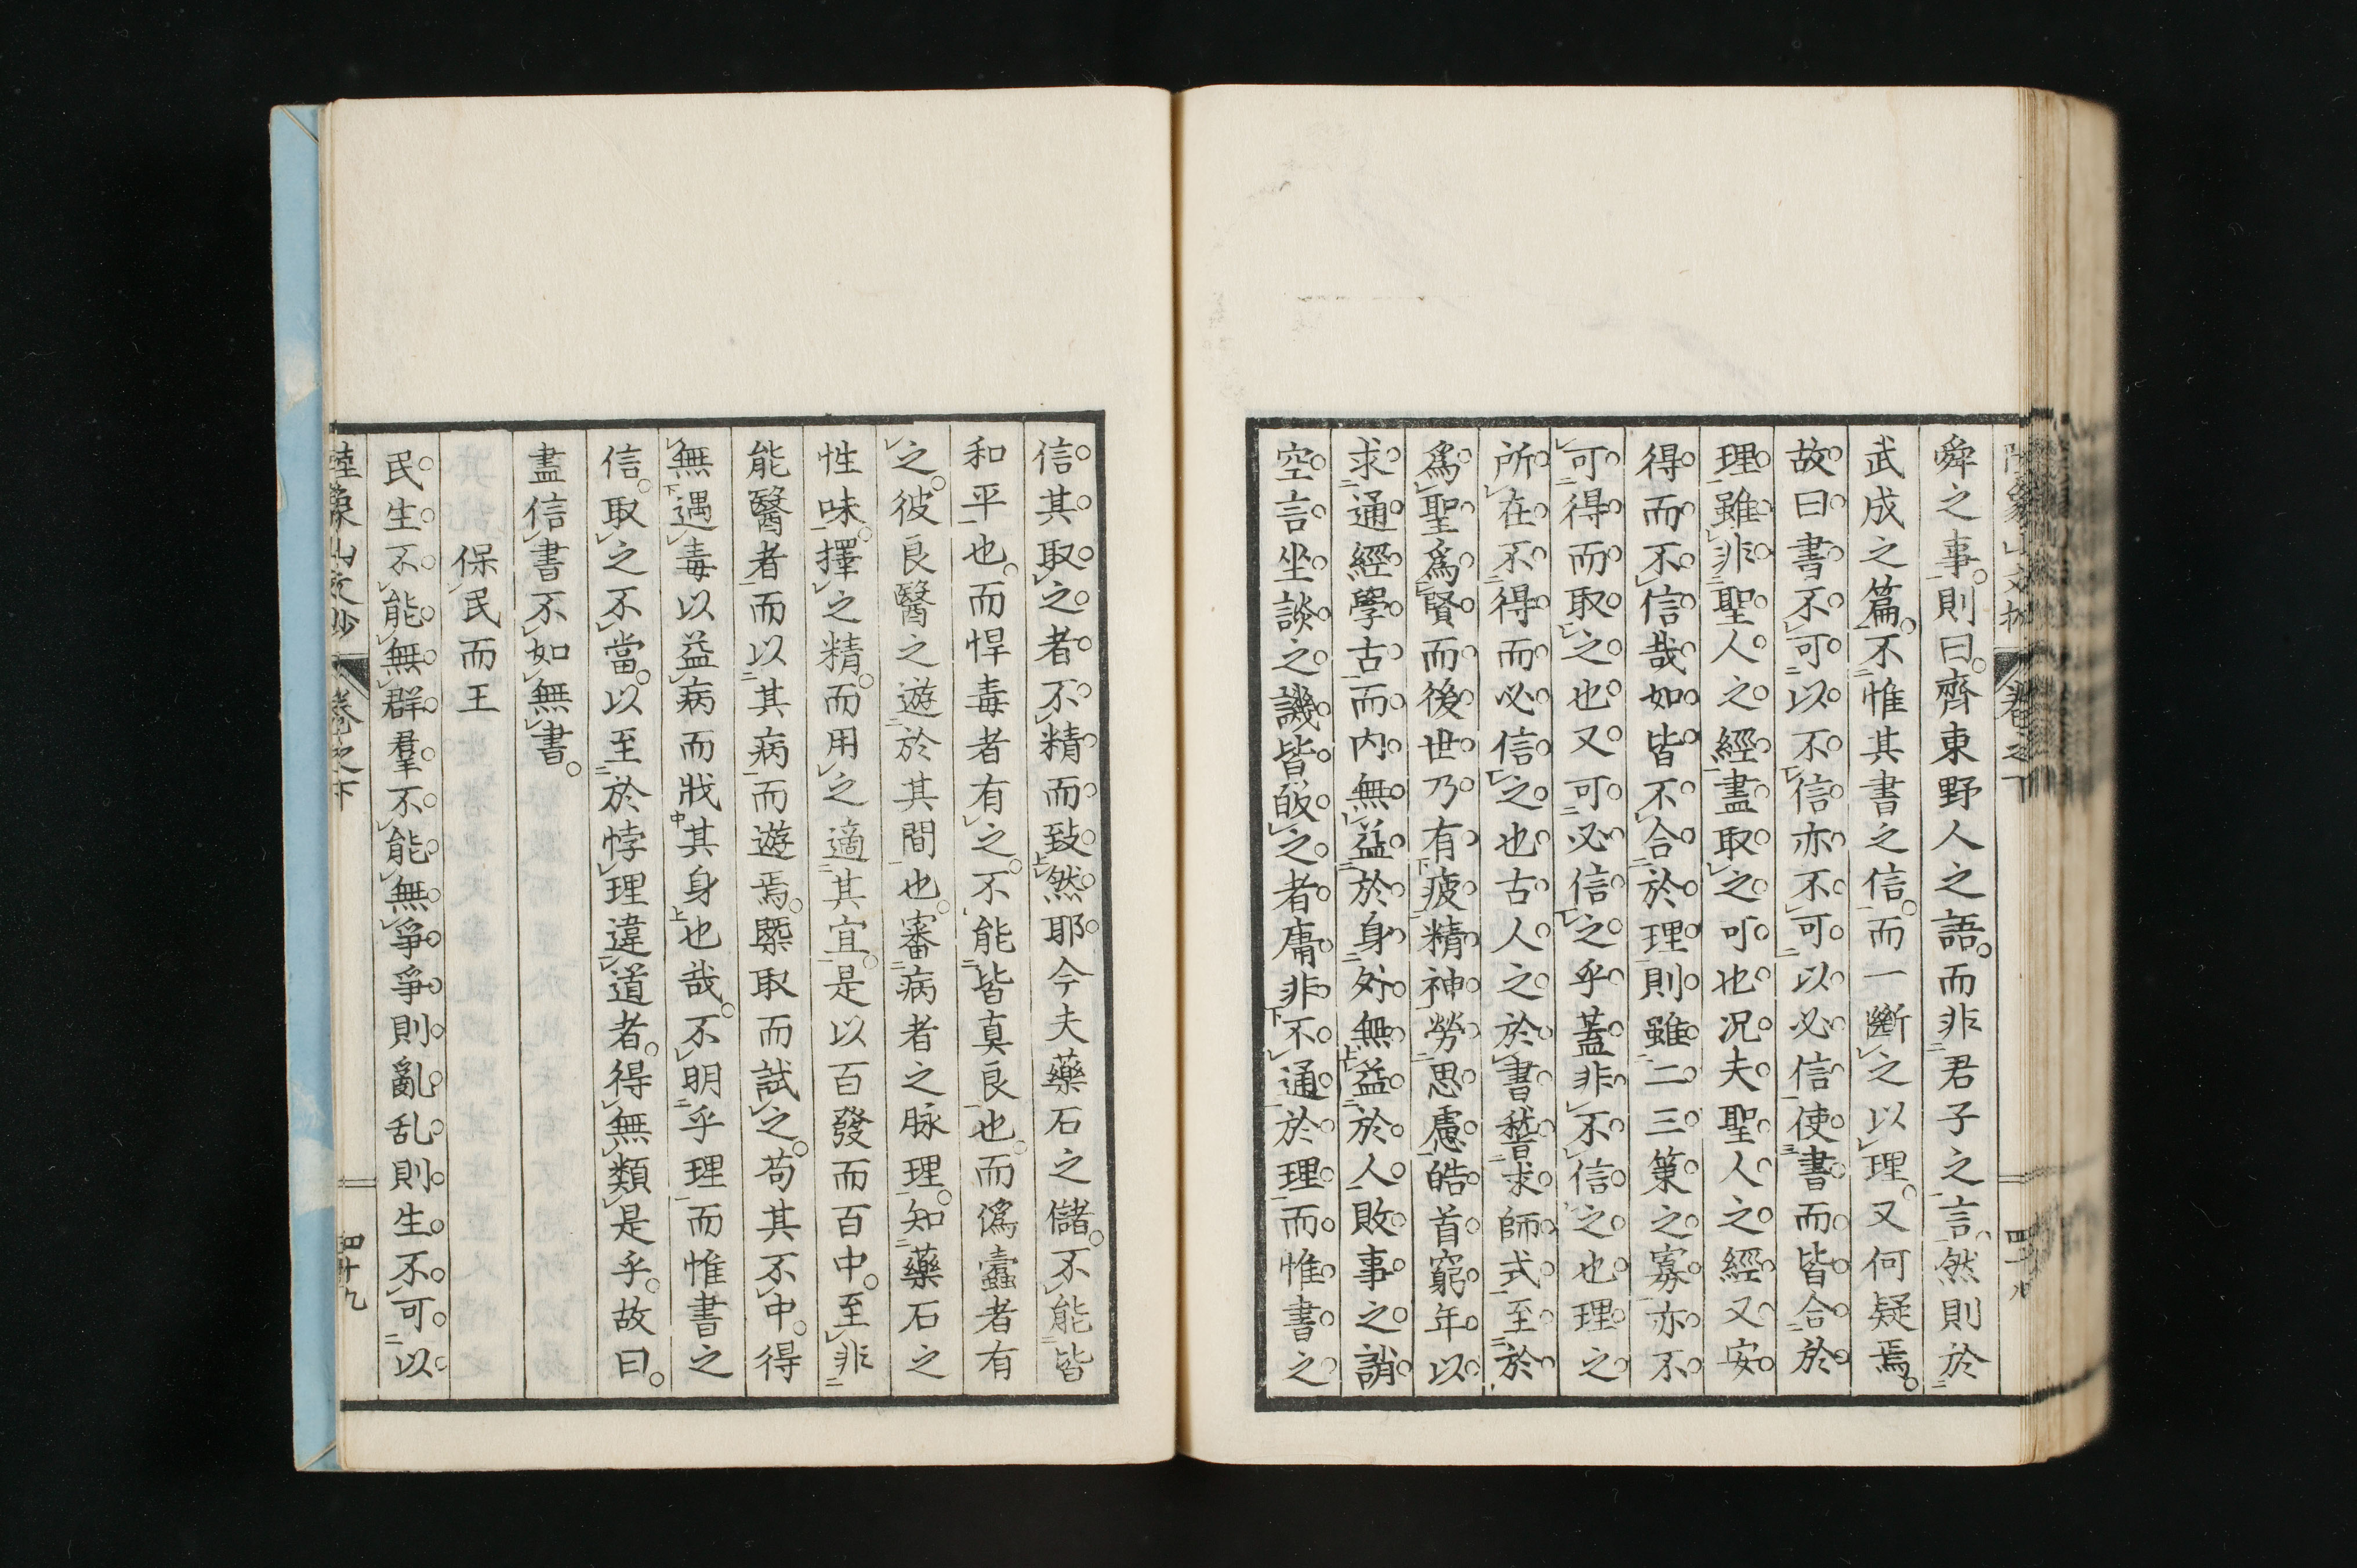 舜之事則曰齊東野人之語而非君子之言然則於
武成之篇不惟其書之信而一斷之以理又何疑焉
故曰書不可以不信亦不可以必信使書而皆合於
理雖非聖人之經盡取之可也况夫聖人之經又安
得而不信哉如皆不合於理則雖二三策之寡亦不
可得而取之也又可必信之乎蓋非不信之也理之
所在不得而必信之也古人之於書稽求師式至於
爲聖爲賢而後世乃有疲精神勞思慮皓首窮年以
求通經學古而内無益於身外無益於人敗事之誚
空言坐談之譏皆敀之者庸非不通於理而惟書之
信其取之者不精而致然耶今夫藥石之儲不能皆
和平也而悍毒者有之不能皆真良也而僞蠹者有
之彼良醫之遊於其間也審病者之脉理知藥石之
性味擇之精而用之適其宜是以百發而百中至非
能醫者而以其病而遊焉槩取而試之苟其不中得
無遇毒以益病而戕其身也哉不明乎理而惟書之
信取之不當以至於悖理違道者得無類是乎故曰
盡信書不如無書
保民而王
民生不能無群羣不能無爭爭則亂乱則生不可以
陸象山文抄 卷之下 四十九